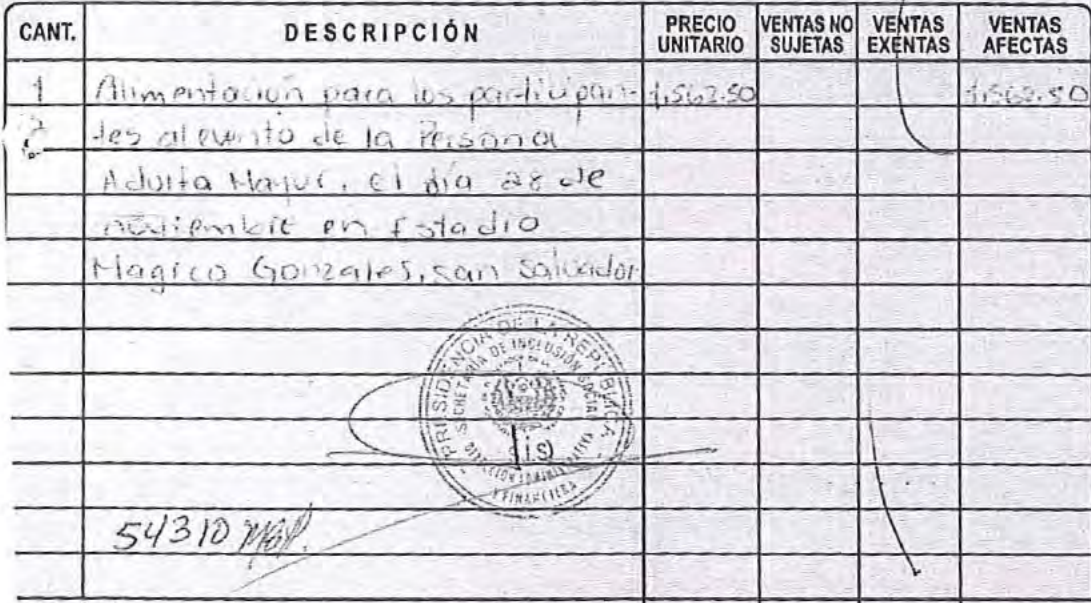 CANT. DESCRIPCIÓN PRECIO UNITARIO VENTAS NO SUJETAS VENTAS EXENTAS VENTAS AFECTAS
1 Alimentación para los participan- 1,562.50 1,562.50
tes al evento de la Persona
Adulta Mayor, el día 28 de
noviembre en Estadio
Magico Gonzales, san Salvador
PRESIDENCIA DE LA REPÚBLICA
SECRETARÍA DE INCLUSIÓN SOCIAL
sis
DIRECCIÓN ADMINISTRATIVA
Y FINANCIERA
54310